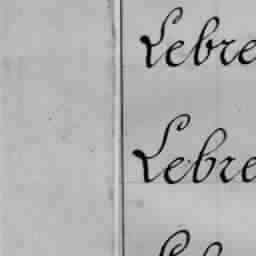 Lebre
Lebre